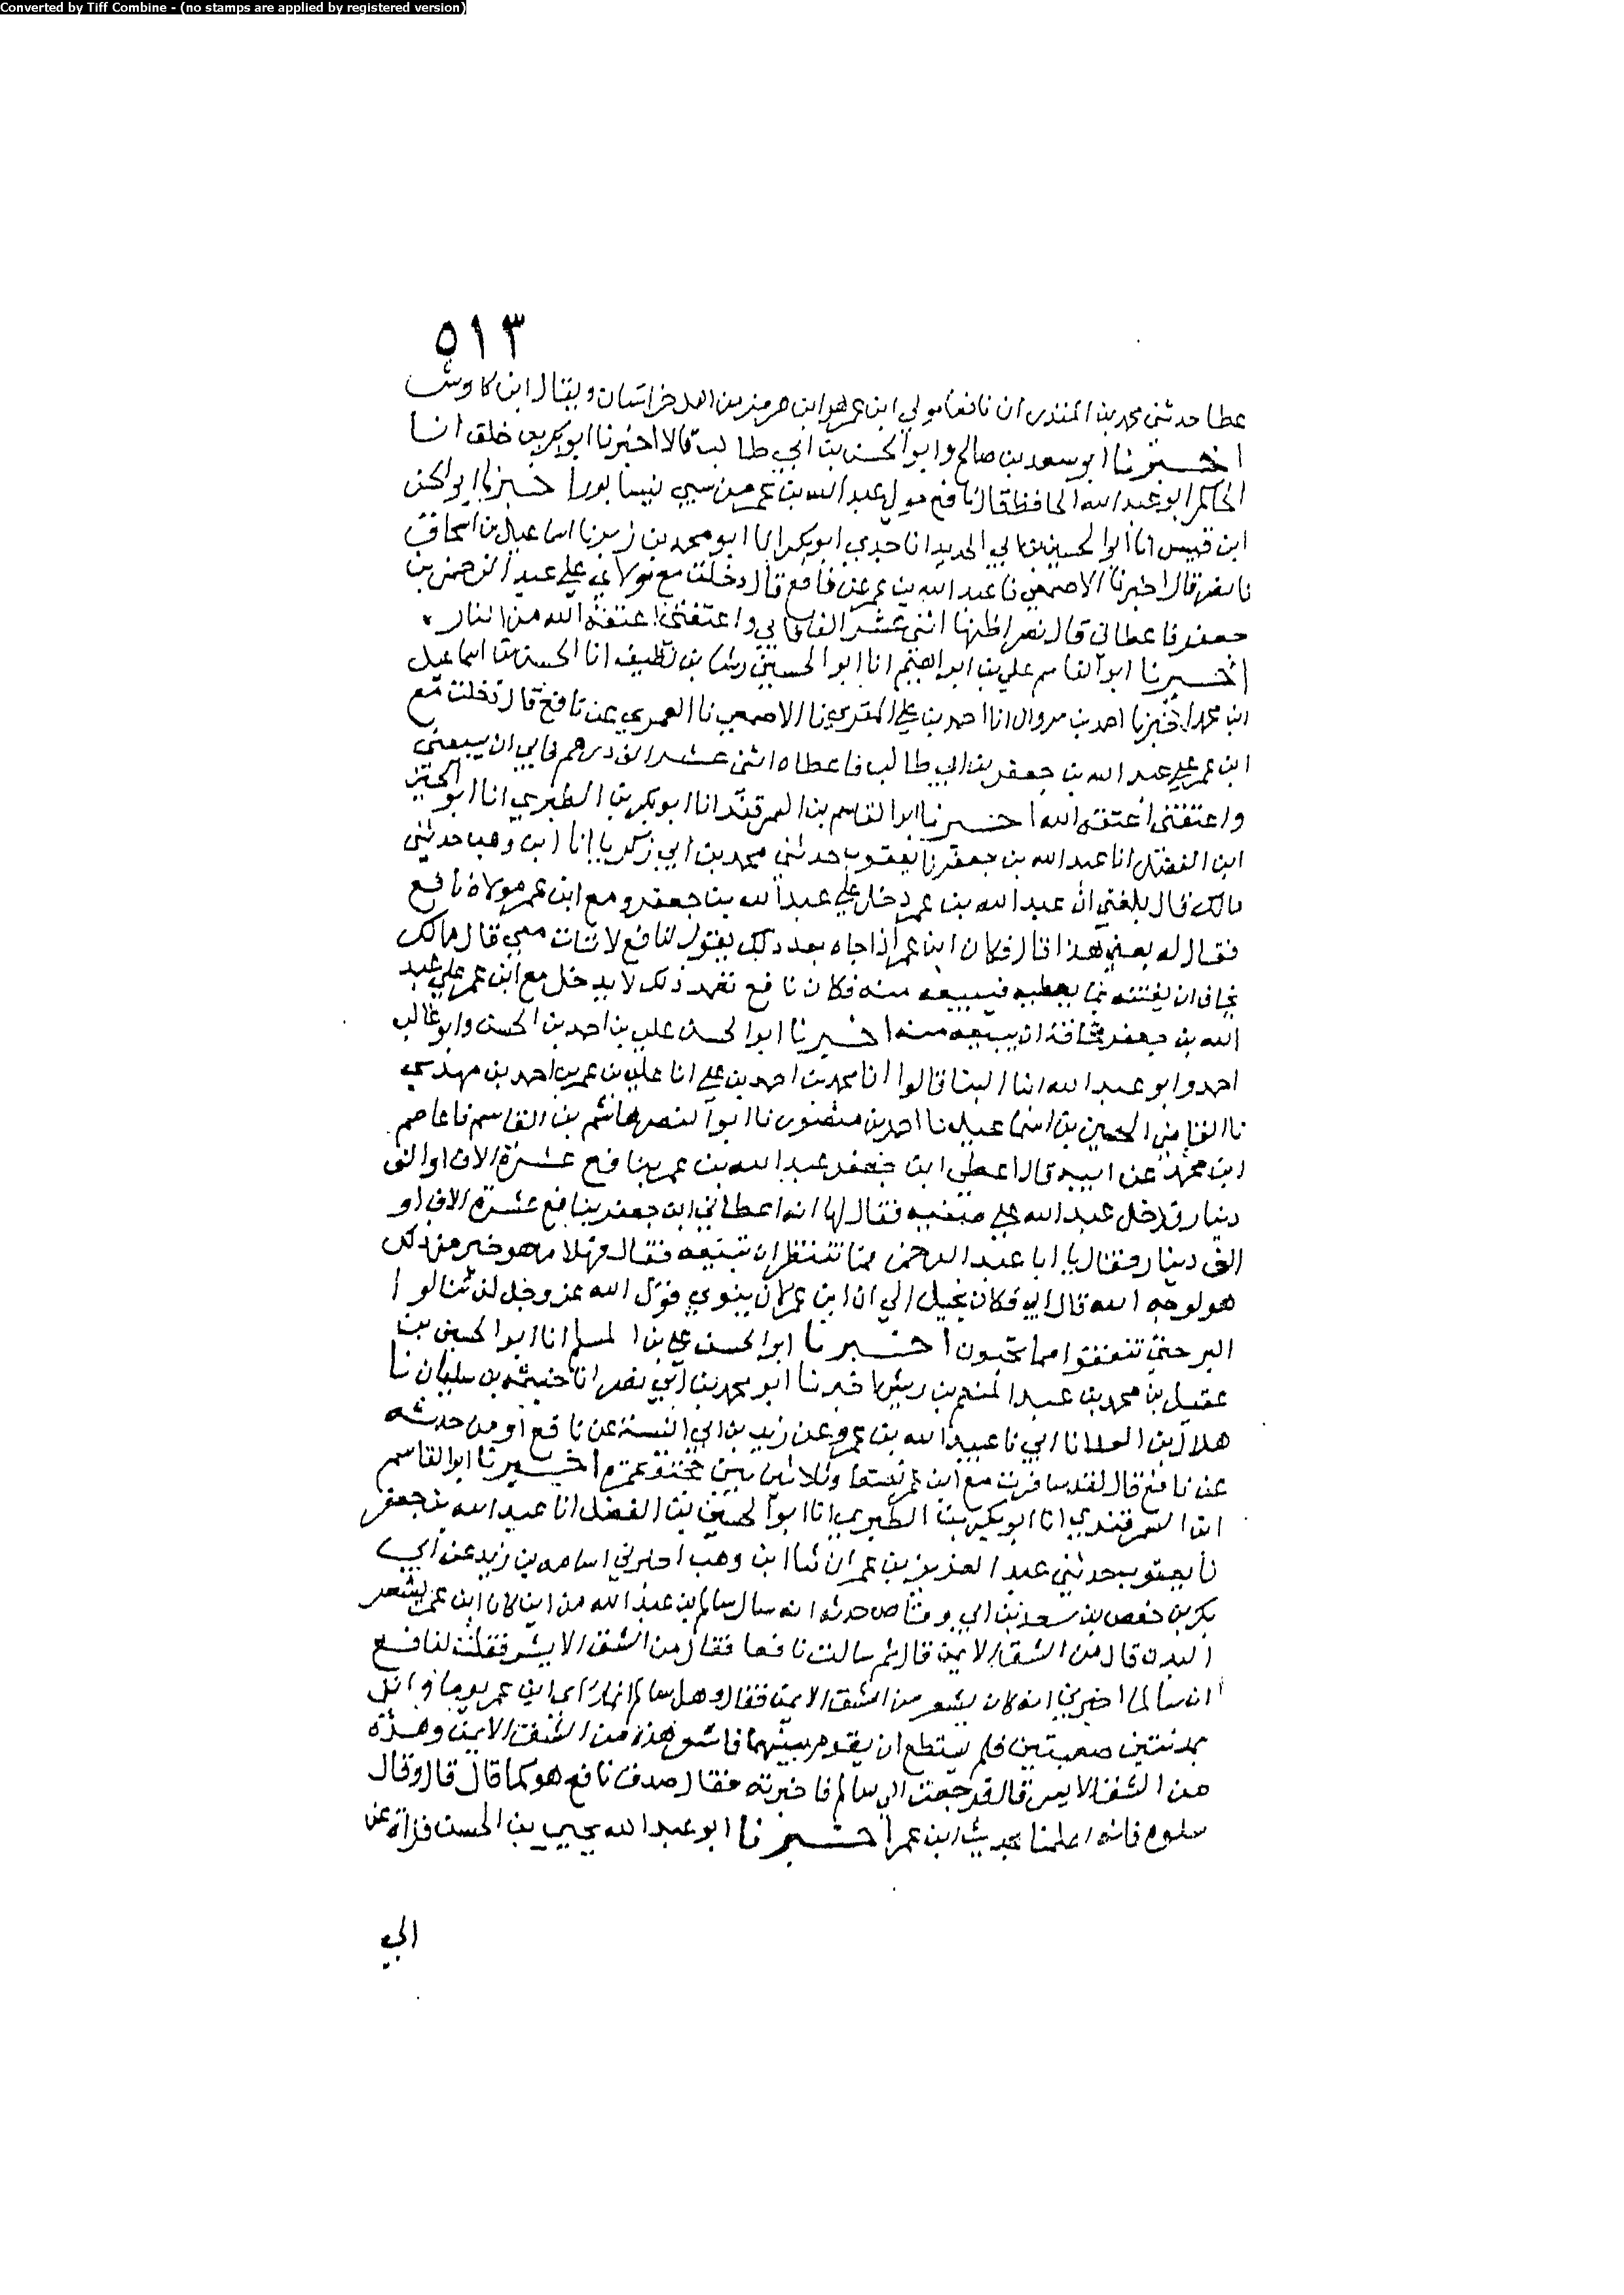 Converted by Tiff Combine - (no stamps are applied by registered version)
٥١٣
عطا حدثني محمد بن المنذر ان نافعا مولي ابن عمر هو ابن هرمز من اهل خراسان ويقال ابن كاوش
اخبرنا ابو سعد بن صالح وابو الحسن بن ابي طالب قالا اخبرنا ابو بكر بن خلف انا
الحاكم ابو عبد الله الحافظ قال نافع مولي عبد الله بن عمر من سبي نيسابور اخبرنا ابو الحسن
ابن قبيس انا ابو الحسين بن ابي الحديد انا جدي ابو بكر انا ابو محمد بن زبر نا اسماعيل بن اسحاق
نا نصر قال اخبرنا الاصمعي نا عبد الله بن عمر عن نافع قال دخلت مع مولاي علي عبد الرحمن بن
جعفر فاعطاني قال نصر اظنها اثني عشر الفا فابي واعتقني اعتقه الله من النار
اخبرنا ابو القاسم علي بن ابراهيم انا ابو الحسين رشا بن نظيف انا الحسن بن اسماعيل
ابن محمد اخبرنا احمد بن مروان انا احمد بن علي المقري نا الاصمعي نا العمري عن نافع قال دخلت مع
ابن عمر علي عبد الله بن جعفر بن ابي طالب فاعطاه اثني عشر الف درهم فابي ان يبيعني
واعتقني اعتقه الله اخبرنا ابو القاسم بن السمرقندي انا ابو بكر بن الطبري انا ابو الحسين
ابن الفضل انا عبد الله بن جعفر نا يعقوب حدثني محمد بن ابي زكريا انا ابن وهب حدثني
مالك قال بلغني ان عبد الله بن عمر دخل علي عبد الله بن جعفر ومع ابن عمر مولاه نافع
فقال له بعني هذا قال فكان ابن عمر اذا جاه بعد ذلك يقول لنافع لا تات معي قال مالك
يخاف ان يفتنه بما يعطيه فيبيعه منه فكان نافع بعد ذلك لا يدخل مع ابن عمر علي عبد
الله بن جعفر مخافة ان يبيعه منه اخبرنا ابو الحسن علي بن احمد بن الحسن وابو غالب
احمد وابو عبد الله ابنا البنا قالوا انا محمد بن احمد بن علي انا علي بن عمر بن احمد بن مهدي
نا القاضي الحسين بن اسماعيل نا احمد بن منصور نا ابو النصر هاشم بن القاسم نا عاصم
ابن محمد عن ابيه قال اعطي ابن جعفر عبد الله بن عمر بنافع عشرة الاف او الف
دينار فدخل عبد الله علي صفيه فقال لها انه اعطاني ابن جعفر بنافع عشرة الاف او
الف دينار فقال يا ابا عبد الرحمن فما تنتظر ان تبيعه فقال فهلا ما هو خير من ذلك
هو لوجه الله قال ابي فكان يخيل الي ان ابن عمر كان ينوي قول الله عز وجل لن تنالوا
البر حتي تنفقوا مما تحبون اخبرنا ابو الحسن علي بن المسلم انا ابو الحسين بن
عقيل بن محمد بن عبد المنعم بن ريش اخبرنا ابو محمد بن ابي نصر انا خيثمه بن سليمان نا
هلال بن العلا نا ابي نا عبيد الله بن عمرو عن زيد بن ابي انيسة عن نافع او من حدثه
عن نافع قال لقد سافرت مع ابن عمر بضعا وثلاثين بين حجة وعمرة اخبرنا ابو القاسم
ابن السمرقندي انا ابو بكر بن الطبري انا ابو الحسين بن الفضل انا عبد الله بن جعفر
نا يعقوب حدثني عبد العزيز بن عمران نا ابن وهب اخبرني اسامه بن زيد عن ابي
بكر بن حفص بن سعد بن ابي وقاص حدثه انه سال سالم بن عبد الله من اين كان ابن عمر يشعر
البدن قال من الشق الايمن قال ثم سالت نافعا فقال من الشق الايسر فقلت لنافع
ان سالما اخبرني انه كان يشعر من الشق الايمن فقال وهل سالم انما راي ابن عمر يوما واتي
ببدنتين صعبتين فلم يستطع ان يقوم بينهما فاشعر هذه من الشق الايمن وهذه
من الشق الايسر قال فرجعت الي سالم فاخبرته فقال صدق نافع هو كما قال قال وقال
سلوه فانه اعلمنا بحديث ابن عمر اخبرنا ابو عبد الله يحيي بن الحسن قراة عن
ابي